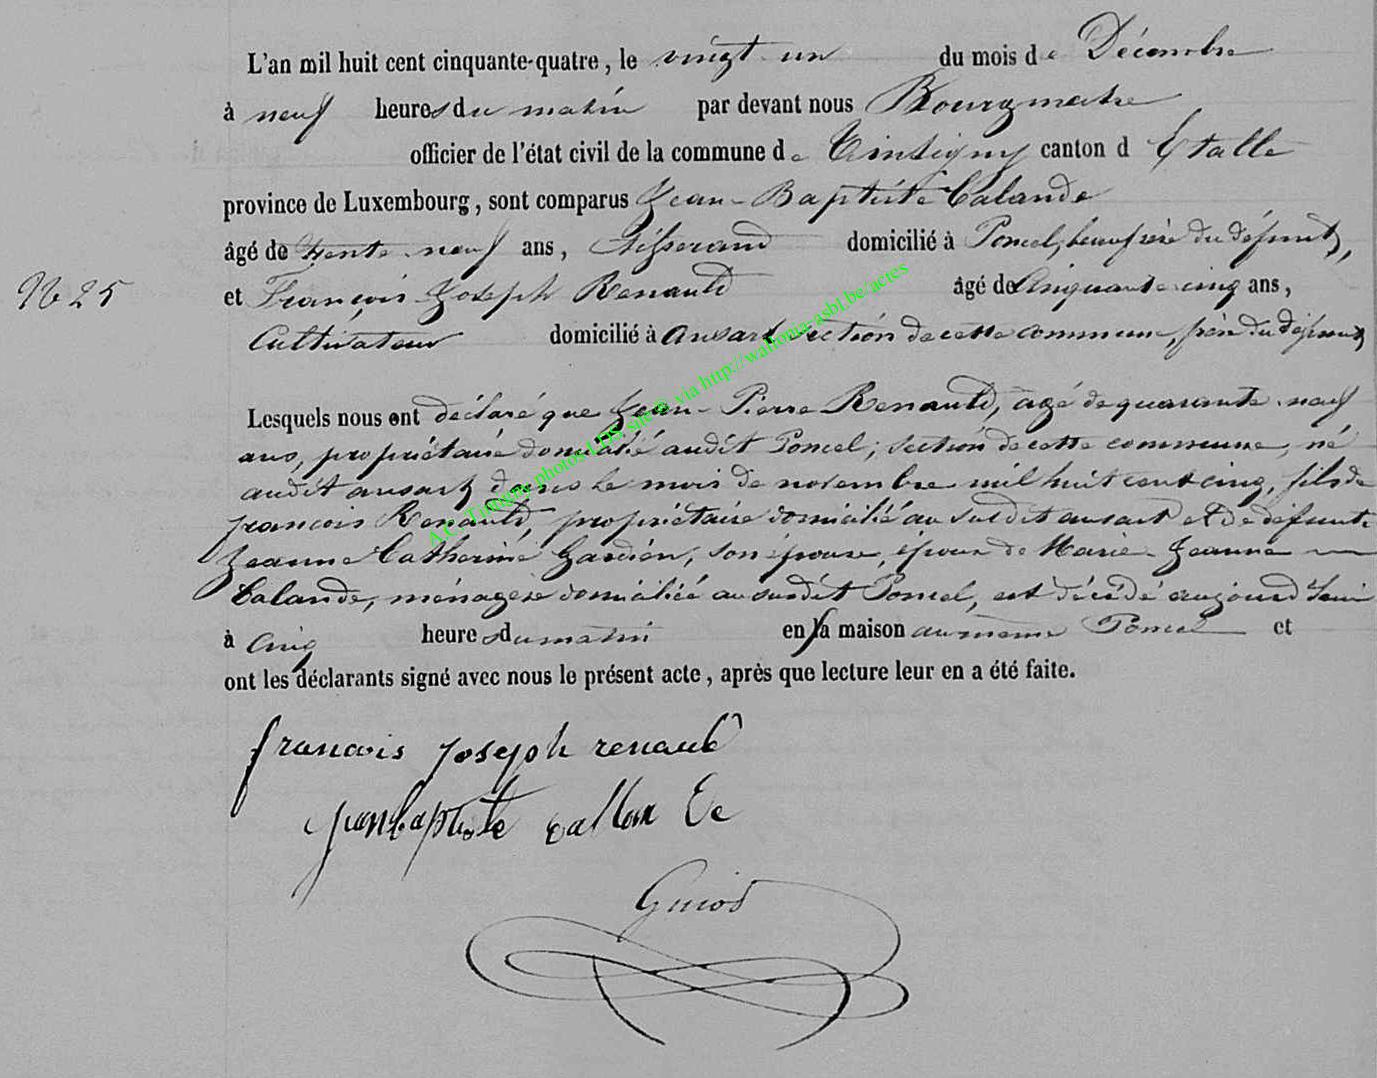 L'an mil huit cent cinquante-quatre, le vingt un du mois de Décembre
à neuf heures du matin par devant nous Bourgmestre
officier de l'état civil de la commune de Tintigny canton d Etalle
province de Luxembourg, sont comparus Jean-Baptiste Calande
âgé de trente-neuf ans, tisserand domicilié à Poncel, beaufrère du défunt,
N° 25
et François Joseph Renauld âgé de Cinquante cinq ans,
Cultivateur domicilié à ansart section de cette commune, frère du défunt
Lesquels nous ont déclaré que Jean-Pierre Renauld, agé de quarante neuf
ans, propriétaire domicilié audit Poncel, section de cette commune, né
audit ansart dans le mois de novembre mil huit cent cinq, fils de
françois Renauld, propriétaire domicilié au susdit ansart et de défunte
Jeanne Catherine Gardien, son épouse, époux de Marie-Jeanne
Calande, ménagère domiciliée au susdit Poncel, est décédé aujourd'hui
à cinq heures du matin en sa maison au même Poncel et
ont les déclarants signé avec nous le présent acte, après que lecture leur en a été faite.
francois joseph renauld
jean baptiste callan de
Guiot
A.C. Tintigny photos LDS site © via http://wallonia-asbl.be/actes